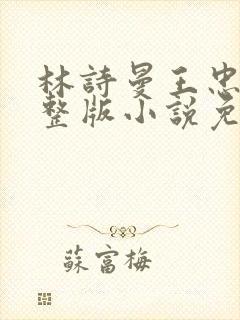 林詩曼王忠
整版小說免
蘇富梅